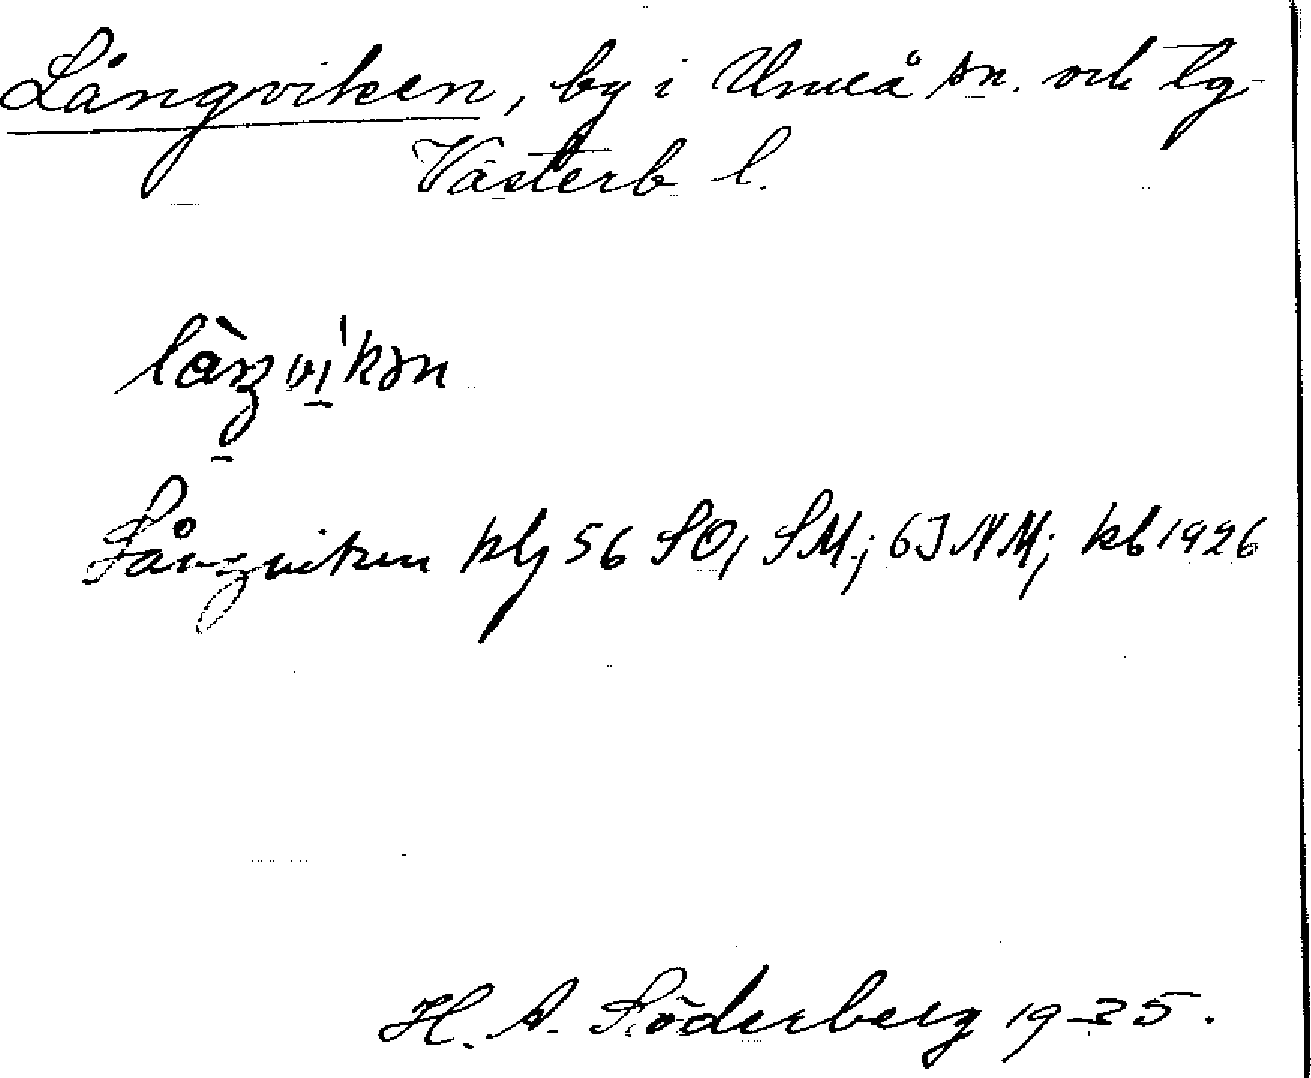 Långviken, by i Umeå sn. och tg
Västerb l.
làŋvi̱'kən
Långviken klg 56 SO, SM; 63 NM; kb 1926
H. A. Söderberg 1935.